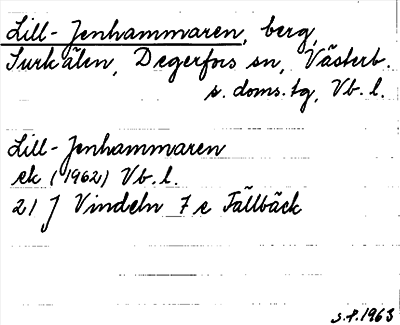 Lill-Jenhammaren, berg,
Surkälen, Degerfors sn, Västerb.
s. doms. tg, Vb. l.
Lill-Jenhammaren
ek (1962) Vb. l.
21 J Vindeln 7 c Fällbäck
s. f. 1963